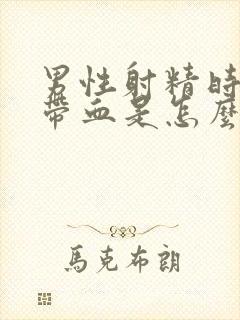 男性射精時
帶血是怎麼
馬克布朗